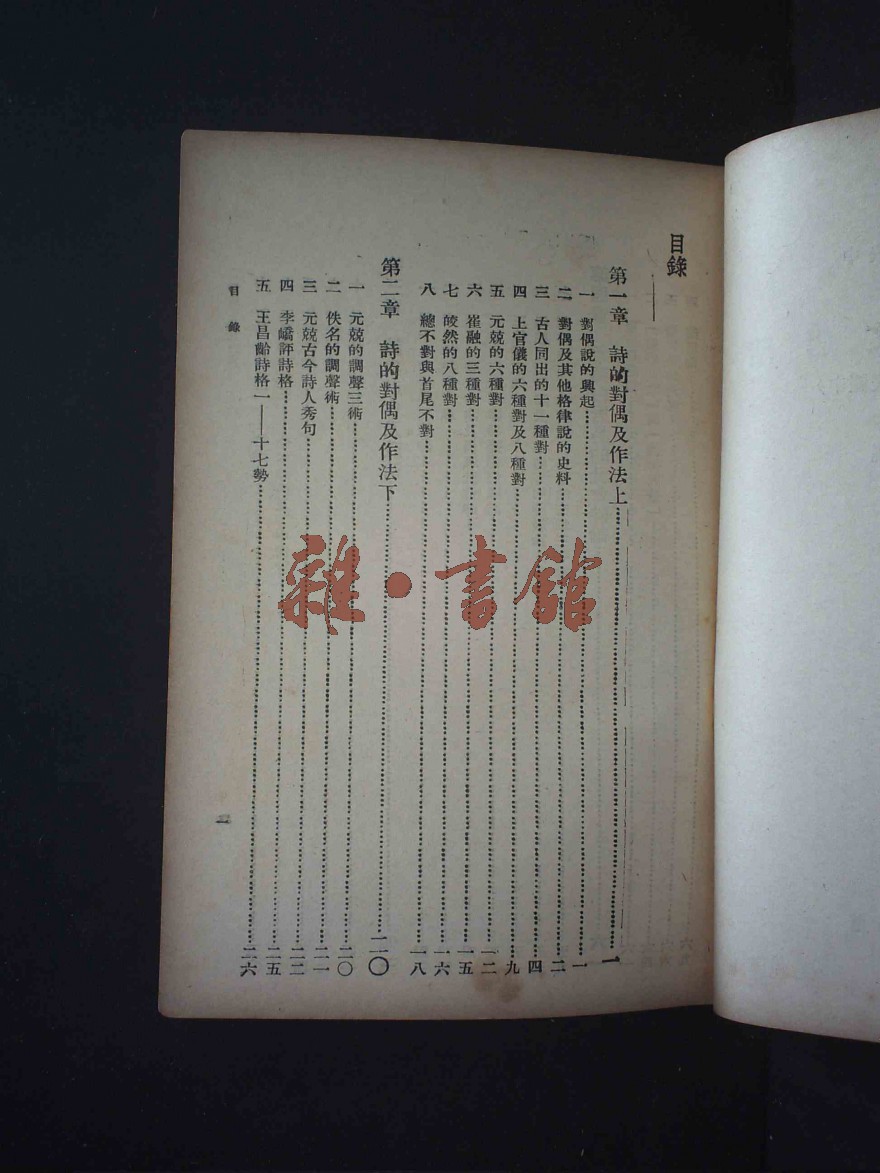 目錄
第一章　詩的對偶及作法上……一
一　對偶說的興起……一
二　對偶及其他格律說的史料……二
三　古人同出的十一種對……四
四　上官儀的六種對及八種對……九
五　元兢的六種對……一二
六　崔融的三種對……一五
七　皎然的八種對……一六
八　總不對與首尾不對……一八
第二章　詩的對偶及作法下……二〇
一　元兢的調聲三術……二〇
二　佚名的調聲術……二一
三　元兢古今詩人秀句……二二
四　李嶠評詩格……二五
五　王昌齡詩格一——十七勢……二六
目錄
一
雜·書館